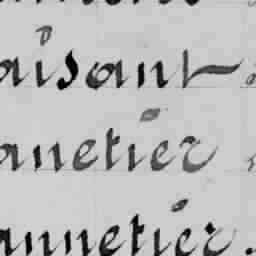 aisant
anetier
annetier.